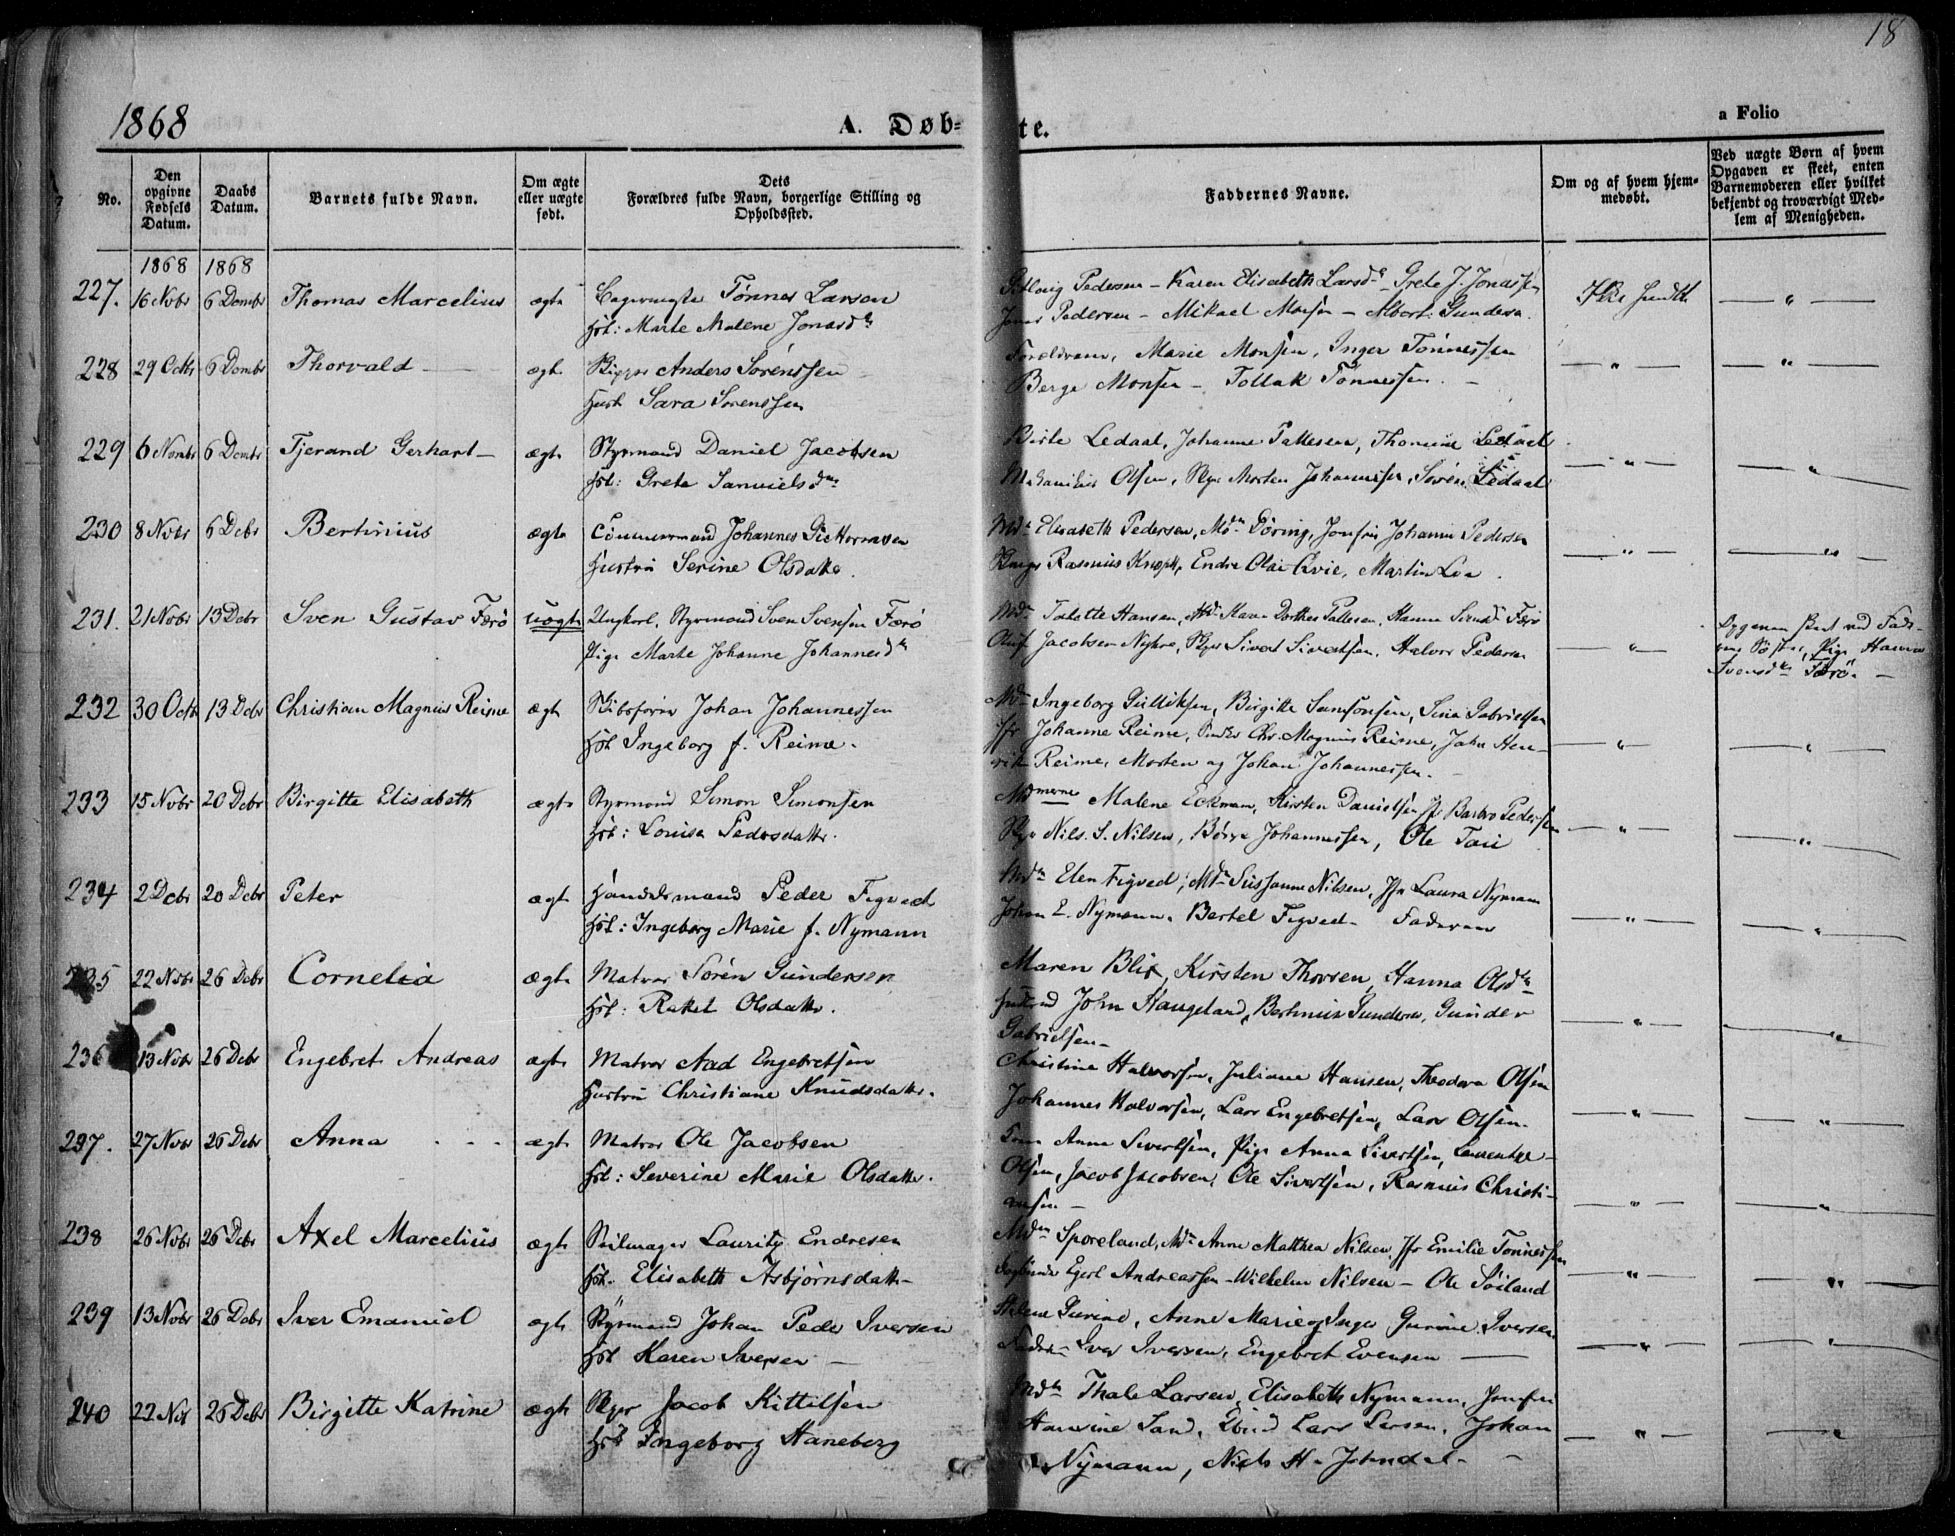 18
1868
A. Døb-
te.
a Folio
No.
Den opgivne Fødsels Datum.
Daabs Datum.
Barnets fulde Navn.
Om ægte eller uægte født.
Dets Forældres fulde Navn, borgerlige Stilling og Opholdssted.
Faddernes Navne.
Om og af hvem hjemmedøbt.
Ved uægte Børn af hvem Opgaven er skeet, enten Barnemoderen eller hvilket bekjendt og troværdigt Medlem af Menigheden.
1868 1868
227. 16 Novbr 6 Dcmbr Thomas Marcelius ægte Tønnes Larsen
Hst: Marte Malene Jonasdtr
Pedersen - Karen Elisabeth Larsd. - Grete J. Jonassen
Jonas Pedersen - Mikael Monsen - Albert Gunders.
Ikke hmdt. — " —
228 29 Octbr 6 Dcmbr Thorvald — ægte Skipper Anders Sörenssen
Hust Sara Sörenssen
Forældrene, Marie Monsen, Inger Tönnessen
Berge Monsen - Tollak Tönnessen. -
— " — — " —
229 6 Novbr 6 Dcmbr Tjerand Gerhart — ægte Styrmand Daniel Jacobsen
Hst: Grete Samuelsdtr
Birte Ledaal, Johanne Pallesen, Thomine Ledaal
Olsen, Skpr Morten Johannessen, Sören Ledaal
— " — — " —
230 8 Novbr 6 Dcbr Bertinius ægte Tömmermand Johannes
Hustru Serine Olsdatter.
Mdm Elisabeth Pedersen, Mdm Döring, Jomfru Johanne Pedersen
Rasmus Knoph, Endre Olai Evie, Martin Lea.
— " — — " —
231. 21 Novbr 13 Dcbr Sven Gustav Færö uægte Ungkarl, Styrmand Sven Svensen Færö
Pige Marte Johanne Johannesdtr
Mdm Hansen, Mdm Karen Dorthea Pallesen, Hanna Svensdtr Færö
Oluf Jacobsen Nykre, Skpr Sivert Sivertsen, Halvor Pedersen
— " — Opgaven skeet ved Fade-
rens Söster, Pige Hanna
Svensdtr Færö. —
232 30 Octbr 13 Dcbr Christian Magnus Reime ægte Skibsförer Johan Johannessen
Hst Ingeborg f. Reime.
Mdm Ingeborg Gulliksen, Birgitte Samsonsen, Sina Gabrielsen
Jfr Johanne Reime, Chr. Magnus Reime, John Hen-
rik Reime, Morten og Johan Johannessen.
— " — — " —
233 15 Novbr 20 Dcbr Birgitte Elisabeth ægte Styrmand Simon Simonsen
Hst: Louise Pedersdatter.
Mdmerne Malene Eckman, Kirsten Danielsen, Jfr Barbro Pedersen
Skpr Nils. S. Nilsen, Börre Johannessen, Ole Tou
— " — — " —
234 2 Dcbr 20 Dcbr Peter ægte Handelsmand Peder Figved
Hst: Ingeborg Marie f. Nymann
Mdm Elen Figved, Mdm Susanne Nilsen, Jfr Laura Nyman
Johan E. Nymann. Bertel Figved - Faderen
— " — — " —
235 22 Novbr 26 Dcbr Cornelia ægte Matros Sörén Gundersen
Hst: Rakel Olsdatter.
Maren Blix, Kirsten Thorsen, Hanna Olsdtr
John Haugeland, Bertinius Gundersen, Gunder
Gabrielsen-
— " — — " —
236 13 Novbr 26 Dcbr Engebret Andreas ægte Matros Aad Engebretsen
Hustru Christiane Knudsdatter.
Christine Halvorsen, Juliane Hansen, Theodora Olsen
Johannes Halvorsen, Lars Engebretsen, Lars Olsen.
— " — — " —
237. 27 Novbr 26 Dcbr Anna ægte Matros Ole Jacobsen
Hst: Severine Marie Olsdatter.
Anna Sivertsen, Pige Anna Sivertsen,
Olsen, Jacob Jacobsen, Ole Sivertsen, Rasmus Christi-
ansen -
— " — — " —
238 26 Novbr 26 Dcbr Axel Marcelius ægte Seilmager Lauritz Endresen
Hst. Elisabeth Asbjörnsdatter-
Mdm Sporeland, Mdm Anne Matthea Nilsen, Jfr Emilie Tönnessen
Egert Andreassen - Wilhelm Nilsen - Ole Söiland
— " — — " —
239 13 Novbr 26 Dcbr Iver Emanuel ægte Styrmand Johan Peder Iversen
Hst Karen Iversen —
Gurine, Anne Marie og Inger Gurine Iversen
Faderen Iver Iversen, Engebret Evensen —
— " — — " —
240 22 Nov 26 Dcbr Birgitte Katrine ægte Skpr Jacob Kittelsen
Hst Ingeborg Haneberg
Mdm Thale Larsen, Elisabeth Nymann, Jomfru
Hansine Sand, Lars Larsen, Johan
Nymann, Niels H. -
— " — — " —